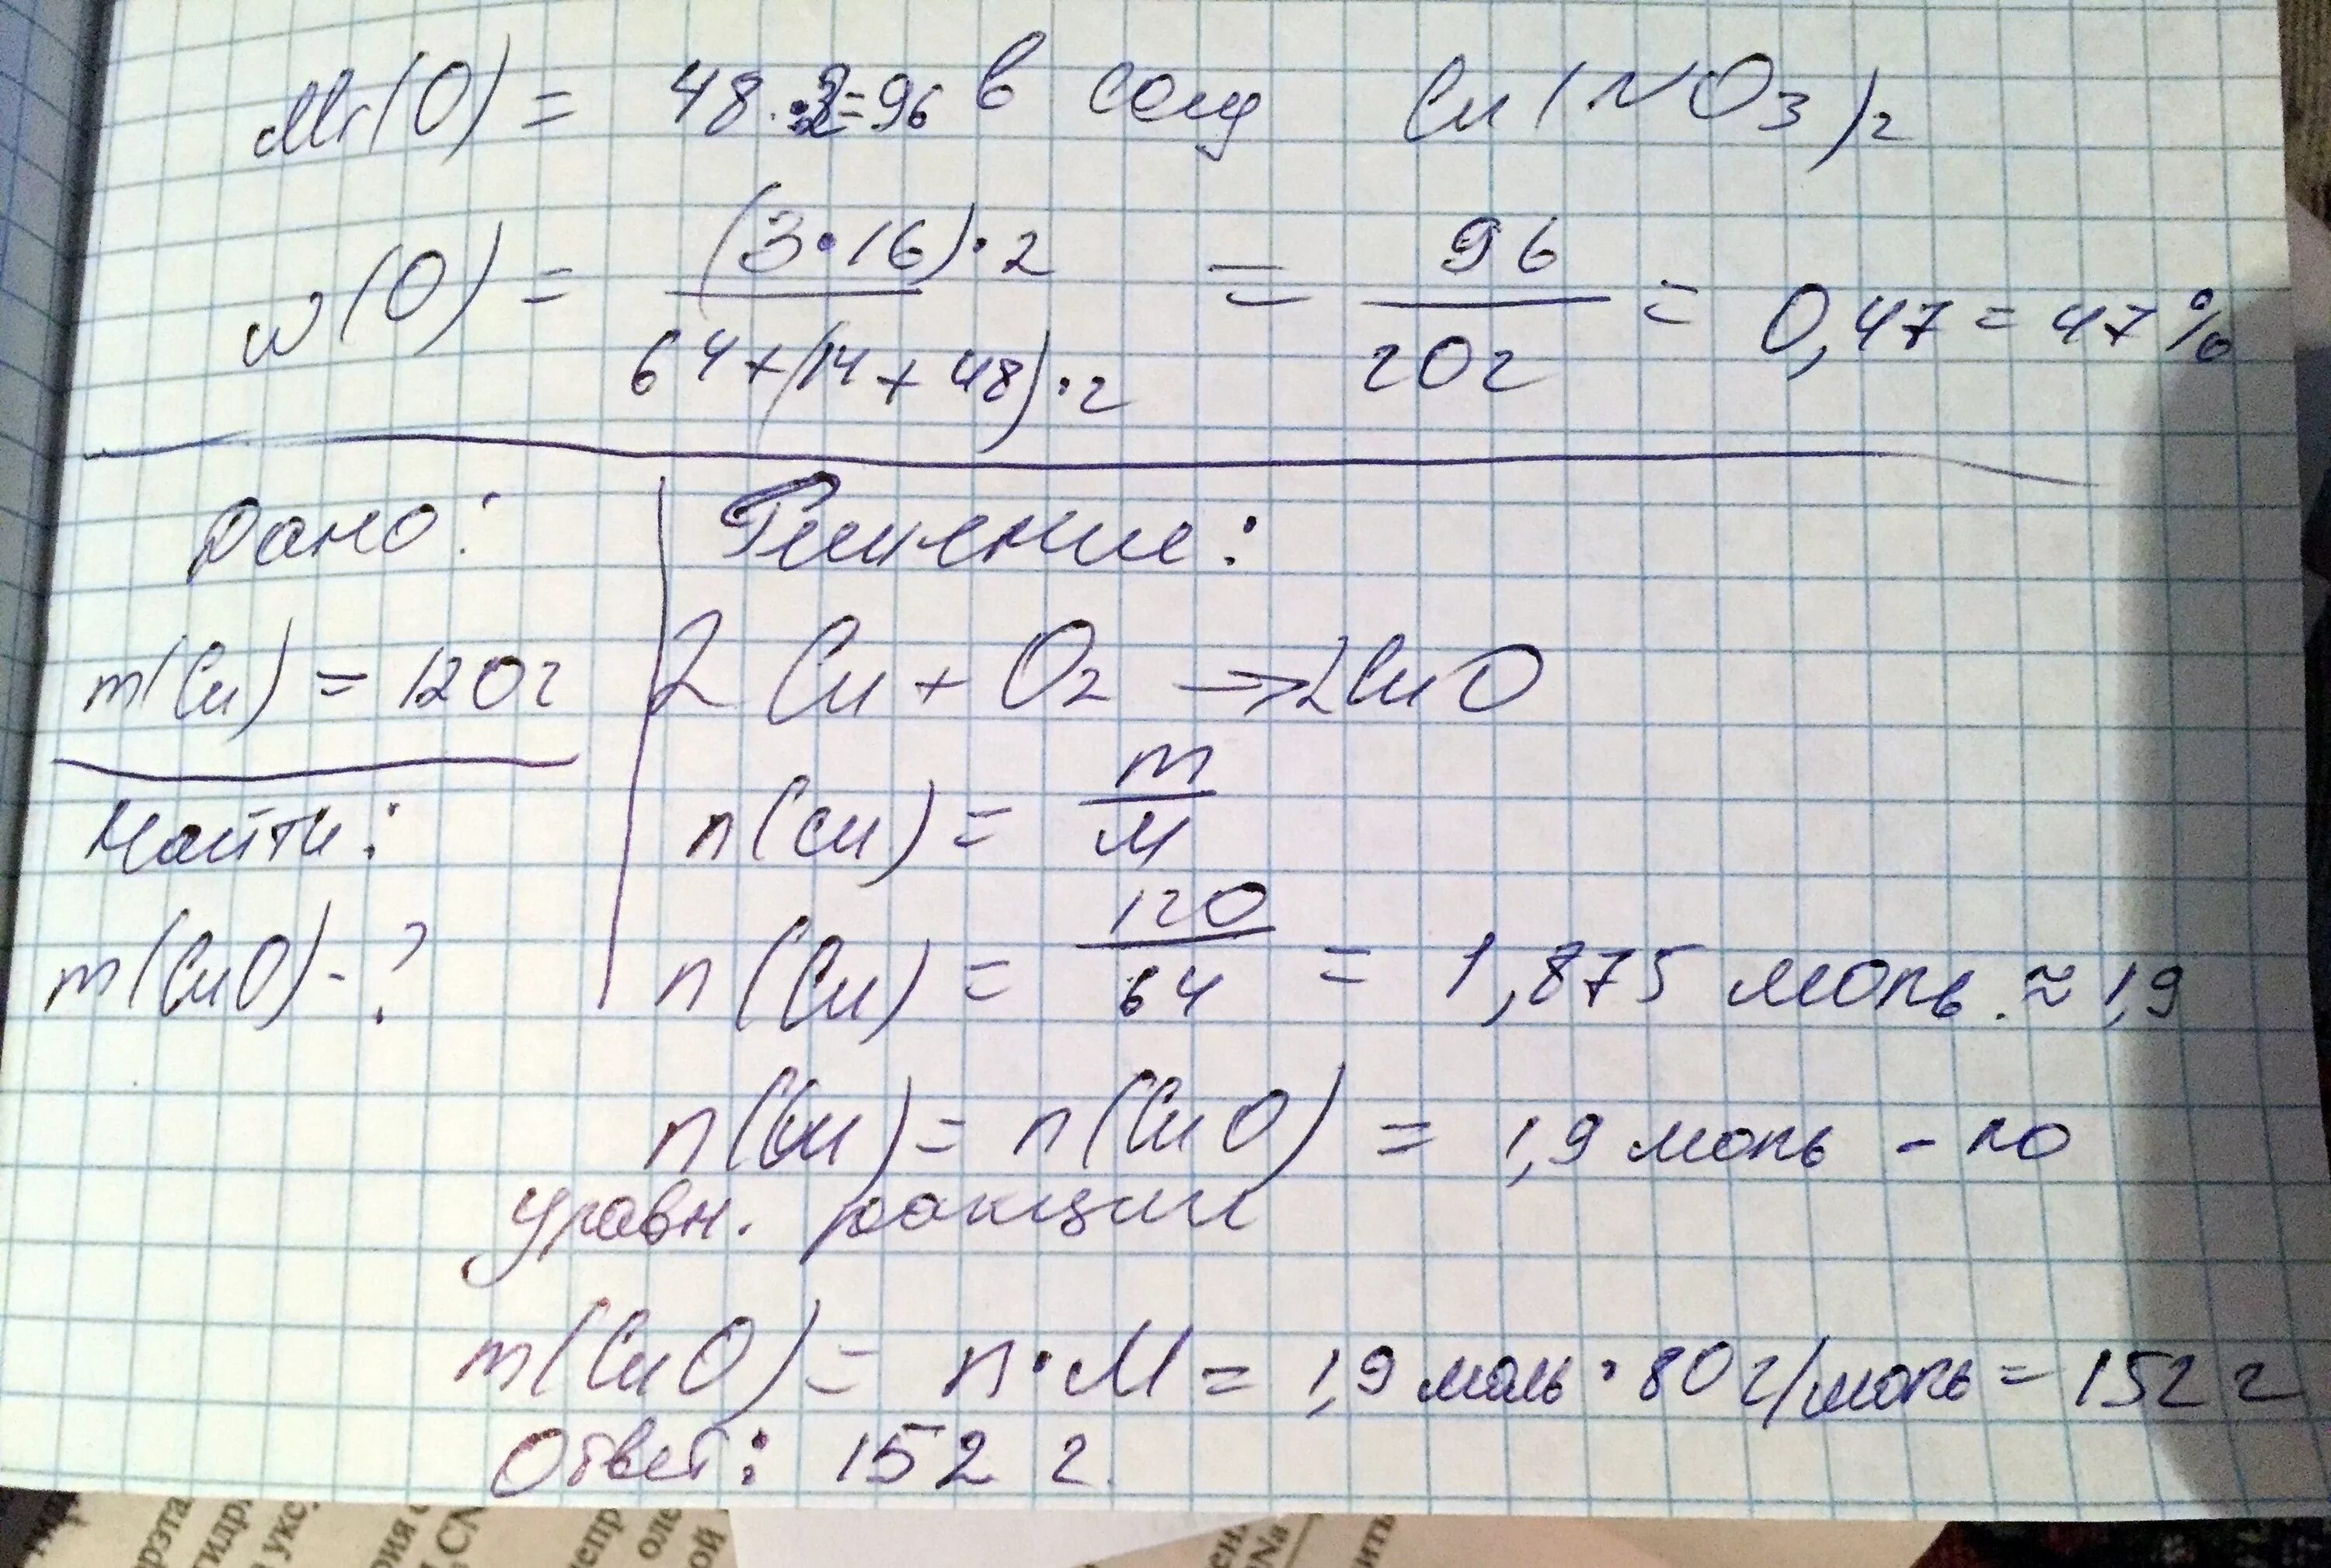 Mr(O) = 48·2=96 в соед Cu(NO3)2
w(O) = (3·16)·2 / 64+(14+48)·2 = 96 / 202 = 0,47 = 47%
Дано:
Решение:
m(Cu) = 120г
2Cu + O2 → 2CuO
Найти:
n(Cu) = m / M
m(CuO) - ?
n(Cu) = 120 / 64 = 1,875 моль. ≈ 1,9
n(Cu) = n(CuO) = 1,9 моль - по
уравн. реакции
m(CuO) = n·M = 1,9 моль · 80 г/моль = 152 г
Ответ: 152 г.